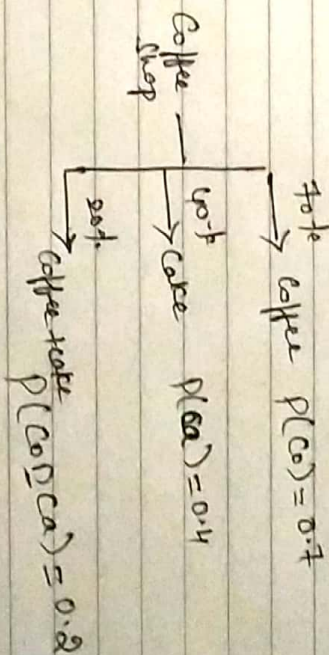 Coffee shop
70% Coffee P(Co) = 0.7
40% Cake P(Ca) = 0.4
20% Coffee + cake
P(Co ∩ Ca) = 0.2